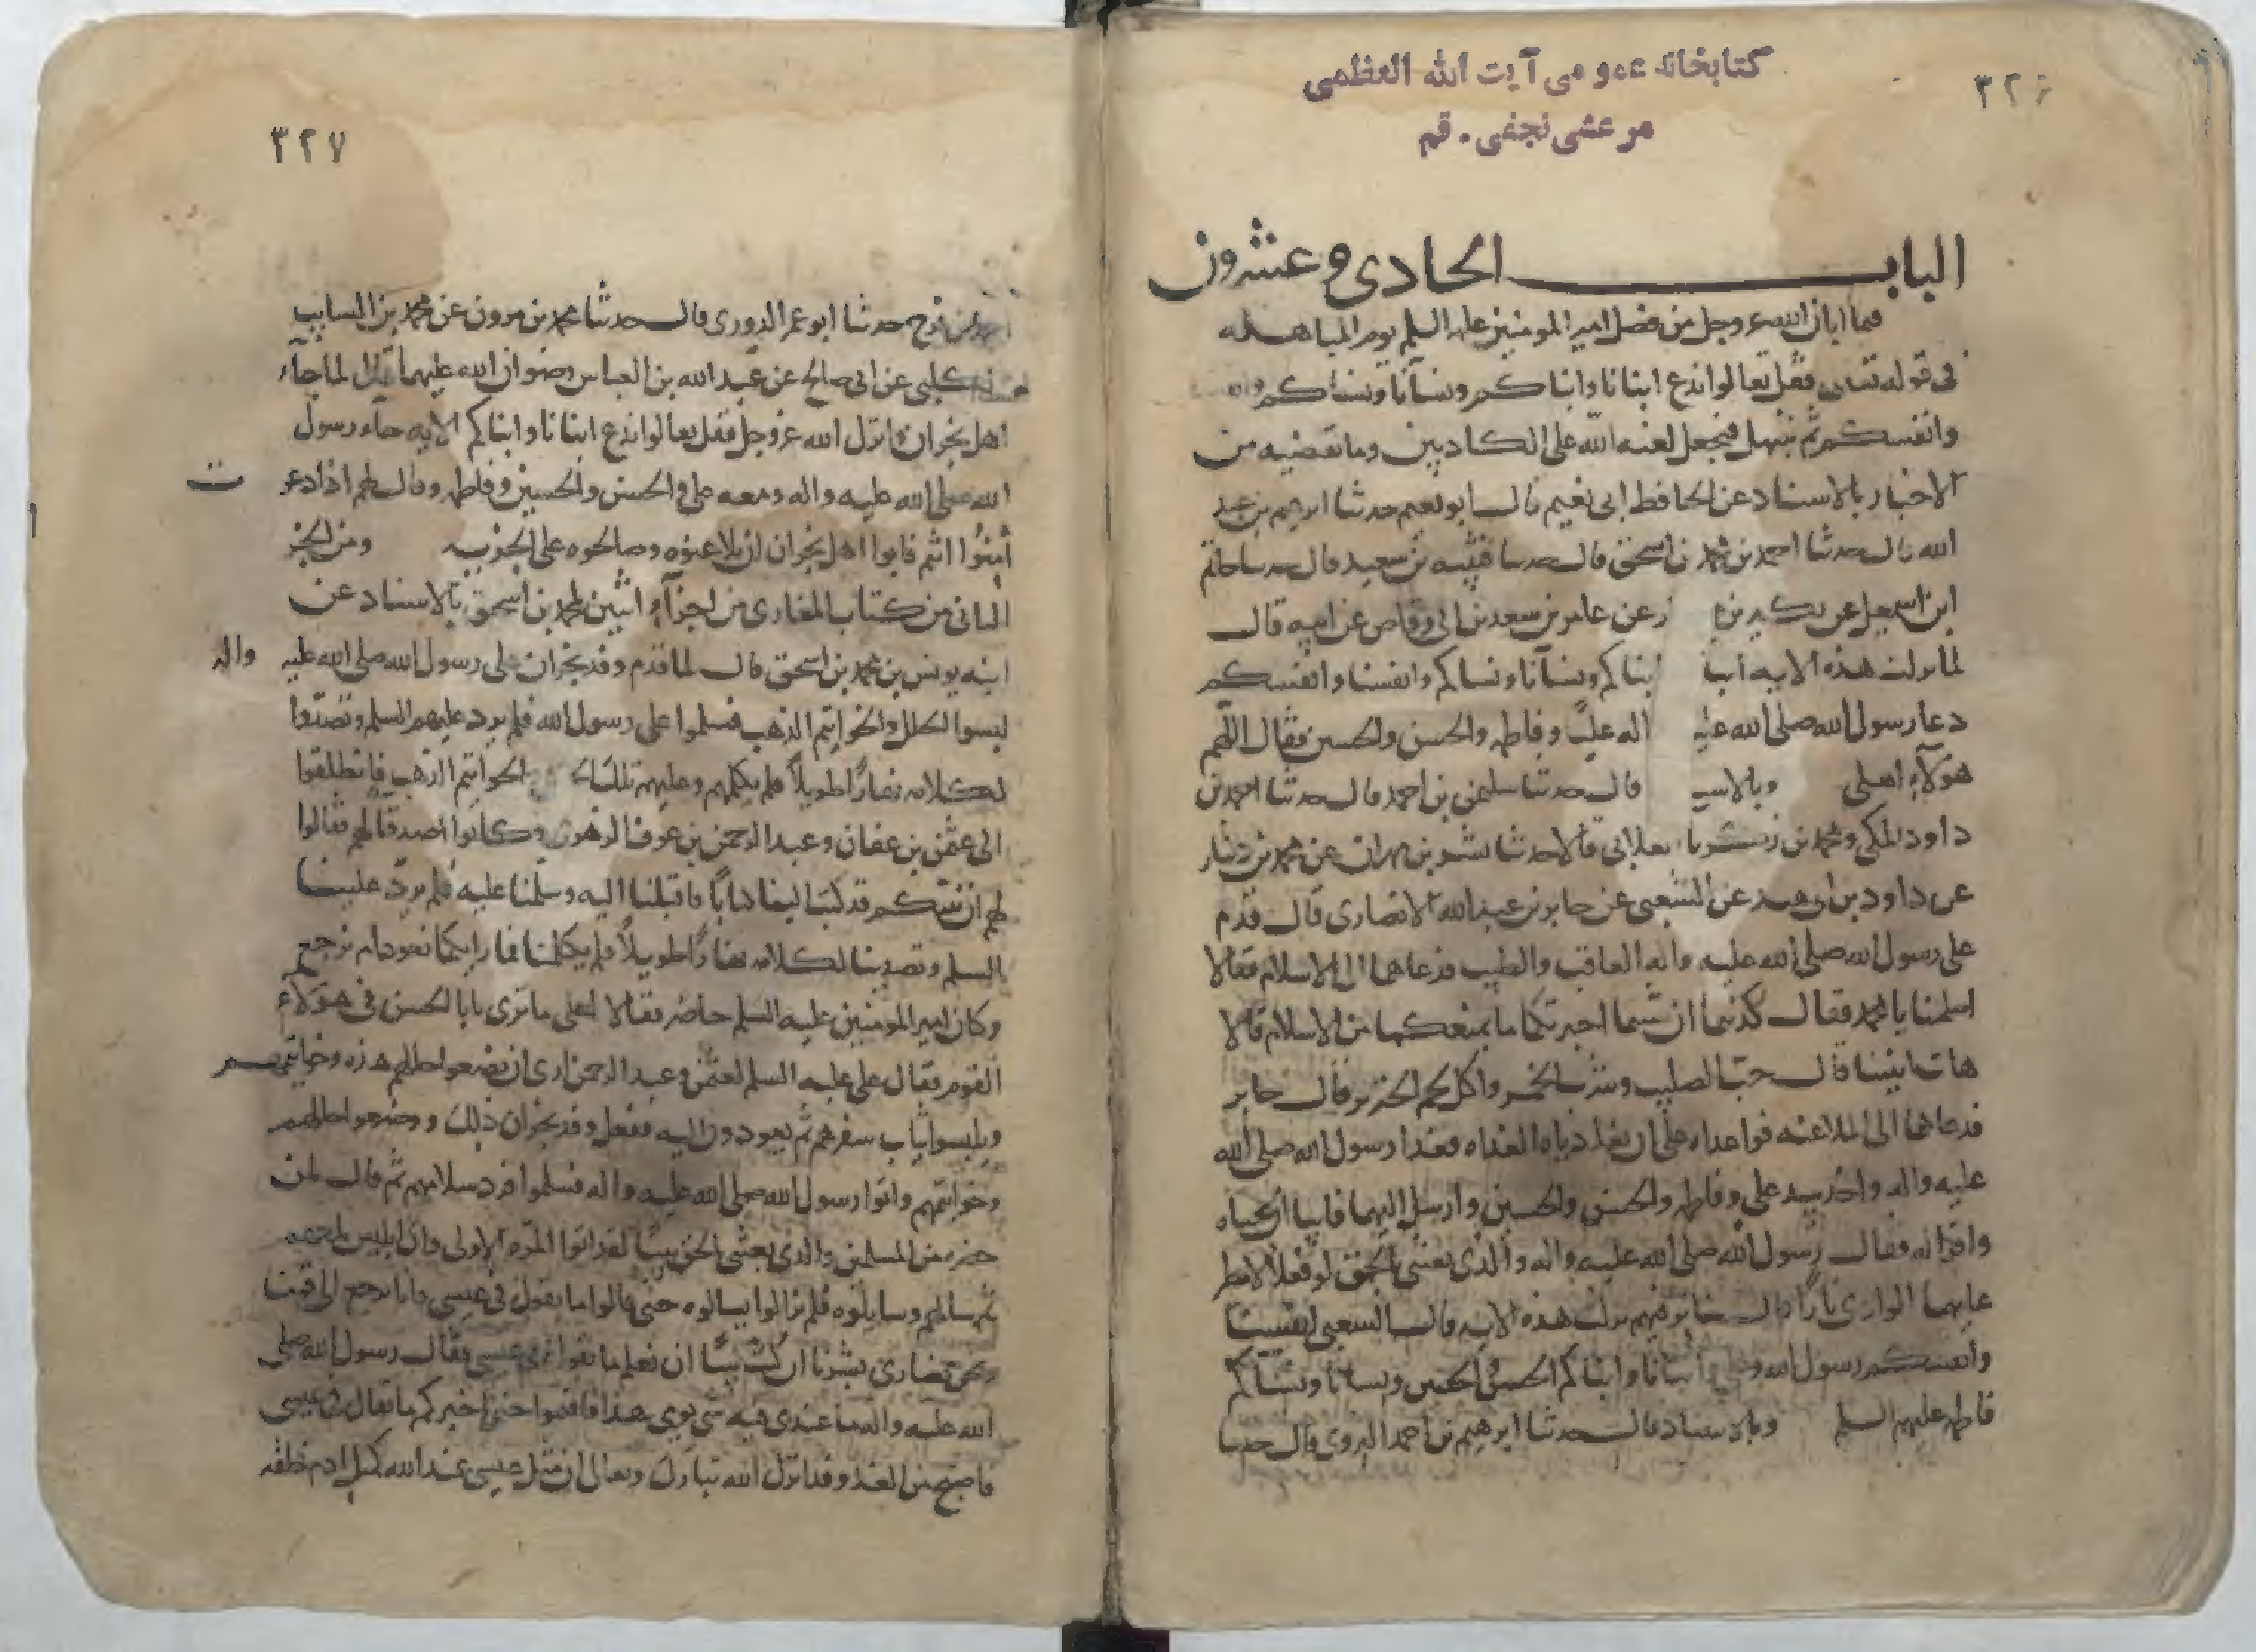 كتابخانه عمومى آيت الله العظمى
مرعشى نجفى . قم
٣٢٦
الباب الحادى و عشرون
فيما ابان الله عز وجل من فضل امير المومنين عليه السلم يوم المباهله
فى قوله تعالى فقل تعالوا ندع ابنانا وابناكم ونسآنا ونساكم
وانفسكم ثم نبتهل فنجعل لعنه الله على الكاذبين وما تقضيه من
الاخبار بالاسناد عن الحافظ ابى نعيم قال ابو نعيم حدثنا ابرهيم بن عبد
الله قال حدثنا احمد بن محمد بن اسحق قال حدسا قتيبه بن سعيد قال حدسا حاتم
ابن اسمعيل عن بكير بن عن عامر بن سعد بن ابى وقاص عن ابيه قال
لما نزلت هذه الايه ابنا ابناكم ونسآنا ونساكم وانفسنا وانفسكم
دعا رسول الله صلى الله عليه اله عليًّ وفاطمه والحسن والحسين فقال اللهم
هولآء اهلى وبالاسـ قال حدثنا سليمن بن احمد قال حدثنا احمد بن
داود المكى ومحمد بن زكريا الغلابى قالا حدثنا بشر بن مهران عن محمد بن دينار
عن داود بن ابى هند عن الشعبى عن جابر بن عبد الله الانصارى قال قدم
على رسول الله صلى الله عليه واله العاقب والطيب فدعاهما الى الاسلام فقالا
اسلمنا يا محمد فقال كذبتما ان شيما اخبرتكما ما يمنعكما من الاسلام قالا
هات انبينا قال حبّ الصليب وشرب الخمر واكل لحم الخنزير قال جابر
فدعاهما الى الملاعنه فواعداه على ان يغادياه بالغداه فغدا رسول الله صلى الله
عليه واله واخذ بيد على وفاطمه والحسن والحسين وارسل اليهما فابيا ان يجياه
واقرا له فقال رسول الله صلى الله عليه واله والذى بعثنى بالحق لو فعلا لامطر
عليهما الوادى نارًا قال جابر فيهم نزلت هذه الايه قال الشعبى انفسنا
وانفسكم رسول الله وعلى وابنانا وابناكم الحسن والحسين ونسانا ونساكم
فاطمه عليهم السلم وبالاسناد قال حدثنا ابرهيم بن احمد البزورى قال حدثنا
٣٢٧
احمد بن فرح حدثنا ابو عمر الدورى قال حدثنا محمد بن مرون عن محمد بن السايب
الكلبى عن ابى صالح عن عبد الله بن العباس رضوان الله عليهما قال لما جآء
اهل نجران وانزل الله عز وجل فقل تعالوا ندع ابنانا وابناكم الايه جآء رسول
الله صلى الله عليه واله ومعه على والحسن والحسين وفاطمه وقال لهم اذا دعوت
أمّنُوا انتم فابوا اهل نجران ان يلاعنوه وصالحوه على الجزيه ومن الجز
الثانى من كتاب المغازى من اجزآء اثنين لمحمد بن اسحق بالاسناد عن
ابنه يونس بن محمد بن اسحق قال لما قدم وفد نجران على رسول الله صلى الله عليه واله
لبسوا الحلل والخواتيم الذهب فسلموا على رسول الله فلم يرد عليهم السلم وتصدّوا
لكلامه نهارًا طويلًا فلم يكلمهم وعليهم تلك الخواتيم الذهب فانطلقوا
الى عثمن بن عفان وعبد الرحمن بن عوف الزهرى وكانوا اصدقا لهم فقالوا
لهم ان نبيّكم قد كتب الينا كتابًا فاقبلنا اليه وسلّمنا عليه فلم يردّ علينا
السلم وتصدينا لكلامه نهارًا طويلًا فلم يكلمنا فما رايكما نعود ام نرجع
وكان امير المومنين عليه السلم حاضر فقالا لعلى ما ترى يابا الحسن فى هولآء
القوم فقال على عليه السلم لعثمن وعبد الرحمن ارى ان يضعوا حللهم هذه وخواتيمهم
ويلبسوا ثياب سفرهم ثم يعودون اليه ففعل وفد نجران ذلك ووضعوا حللهم
وخواتيمهم واتوا رسول الله صلى الله عليه واله فسلموا فرد سلامهم ثم قال لمن
حضر من المسلمين والذى بعثنى بالحق نبيًا لقد اتوا المرّه الاولى وان ابليس لمعهم
ثم سالهم وسايلوه فلم يزالوا يسالوه حتى قالوا ما تقول فى عيسى فانا نرجع الى قومنا
ونحن نصارى بشرنا ان كنت نبيًا ان نعلم ما تقول فى عيسى فقال رسول الله صلى
الله عليه واله ما عندى فيه شى يومى هذا فاقيموا حتى اخبركم ما يقال فى عيسى
فاصبح من الغد وقد انزل الله تبارك وتعالى ان مثل عيسى عند الله كمثل ادم خلقه